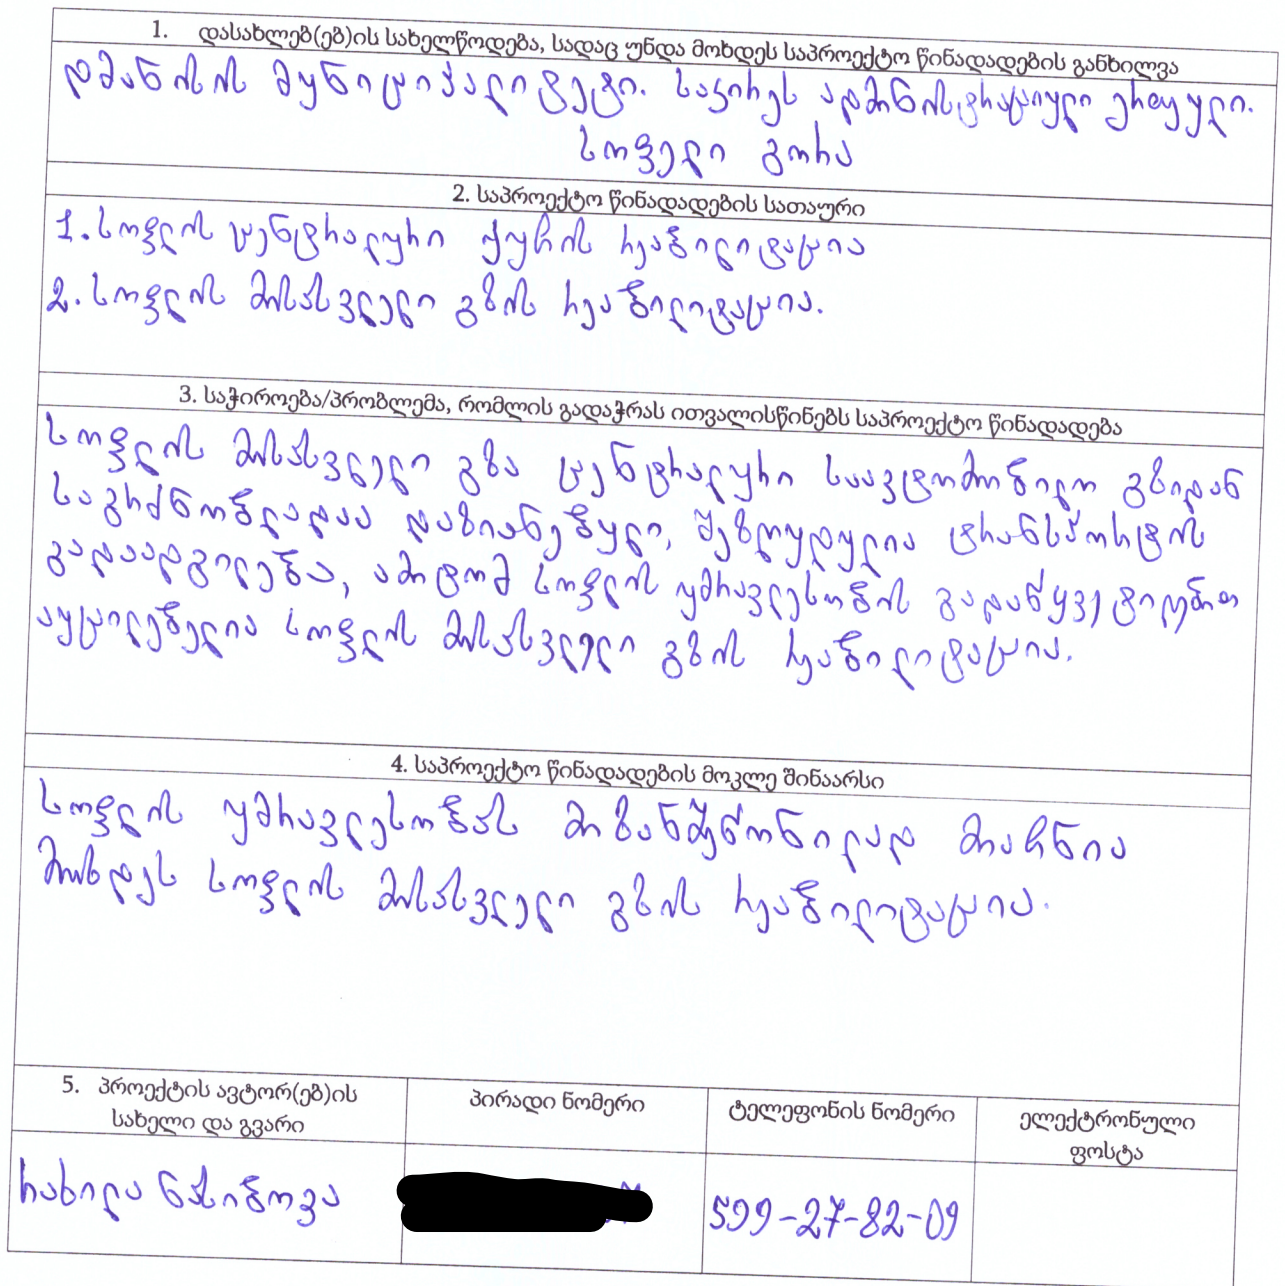 1. დასახლებ(ებ)ის სახელწოდება, სადაც უნდა მოხდეს საპროექტო წინადადების განხილვა
დმანისის მუნიციპალიტეტი. საკირეს ადმინისტრაციული ერთეული.
სოფელი გორა
2. საპროექტო წინადადების სათაური
1. სოფლის ცენტრალური ქუჩის რეაბილიტაცია
2. სოფლის მისასვლელი გზის რეაბილიტაცია.
3. საჭიროება/პრობლემა, რომლის გადაჭრას ითვალისწინებს საპროექტო წინადადება
სოფლის მისასვლელი გზა ცენტრალური საავტომობილო გზიდან
საგრძნობლადაა დაზიანებული, შეზღუდულია ტრანსპორტის
გადაადგილება, ამიტომ სოფლის უმრავლესობის გადაწყვეტილებით
აუცილებელია სოფლის მისასვლელი გზის რეაბილიტაცია.
4. საპროექტო წინადადების მოკლე შინაარსი
სოფლის უმრავლესობას მიზანშეწონილად მიაჩნია
მოხდეს სოფლის მისასვლელი გზის რეაბილიტაცია.
5. პროექტის ავტორ(ებ)ის
სახელი და გვარი
პირადი ნომერი
ტელეფონის ნომერი
ელექტრონული
ფოსტა
რახილა ნასიბოვა
599-27-82-09